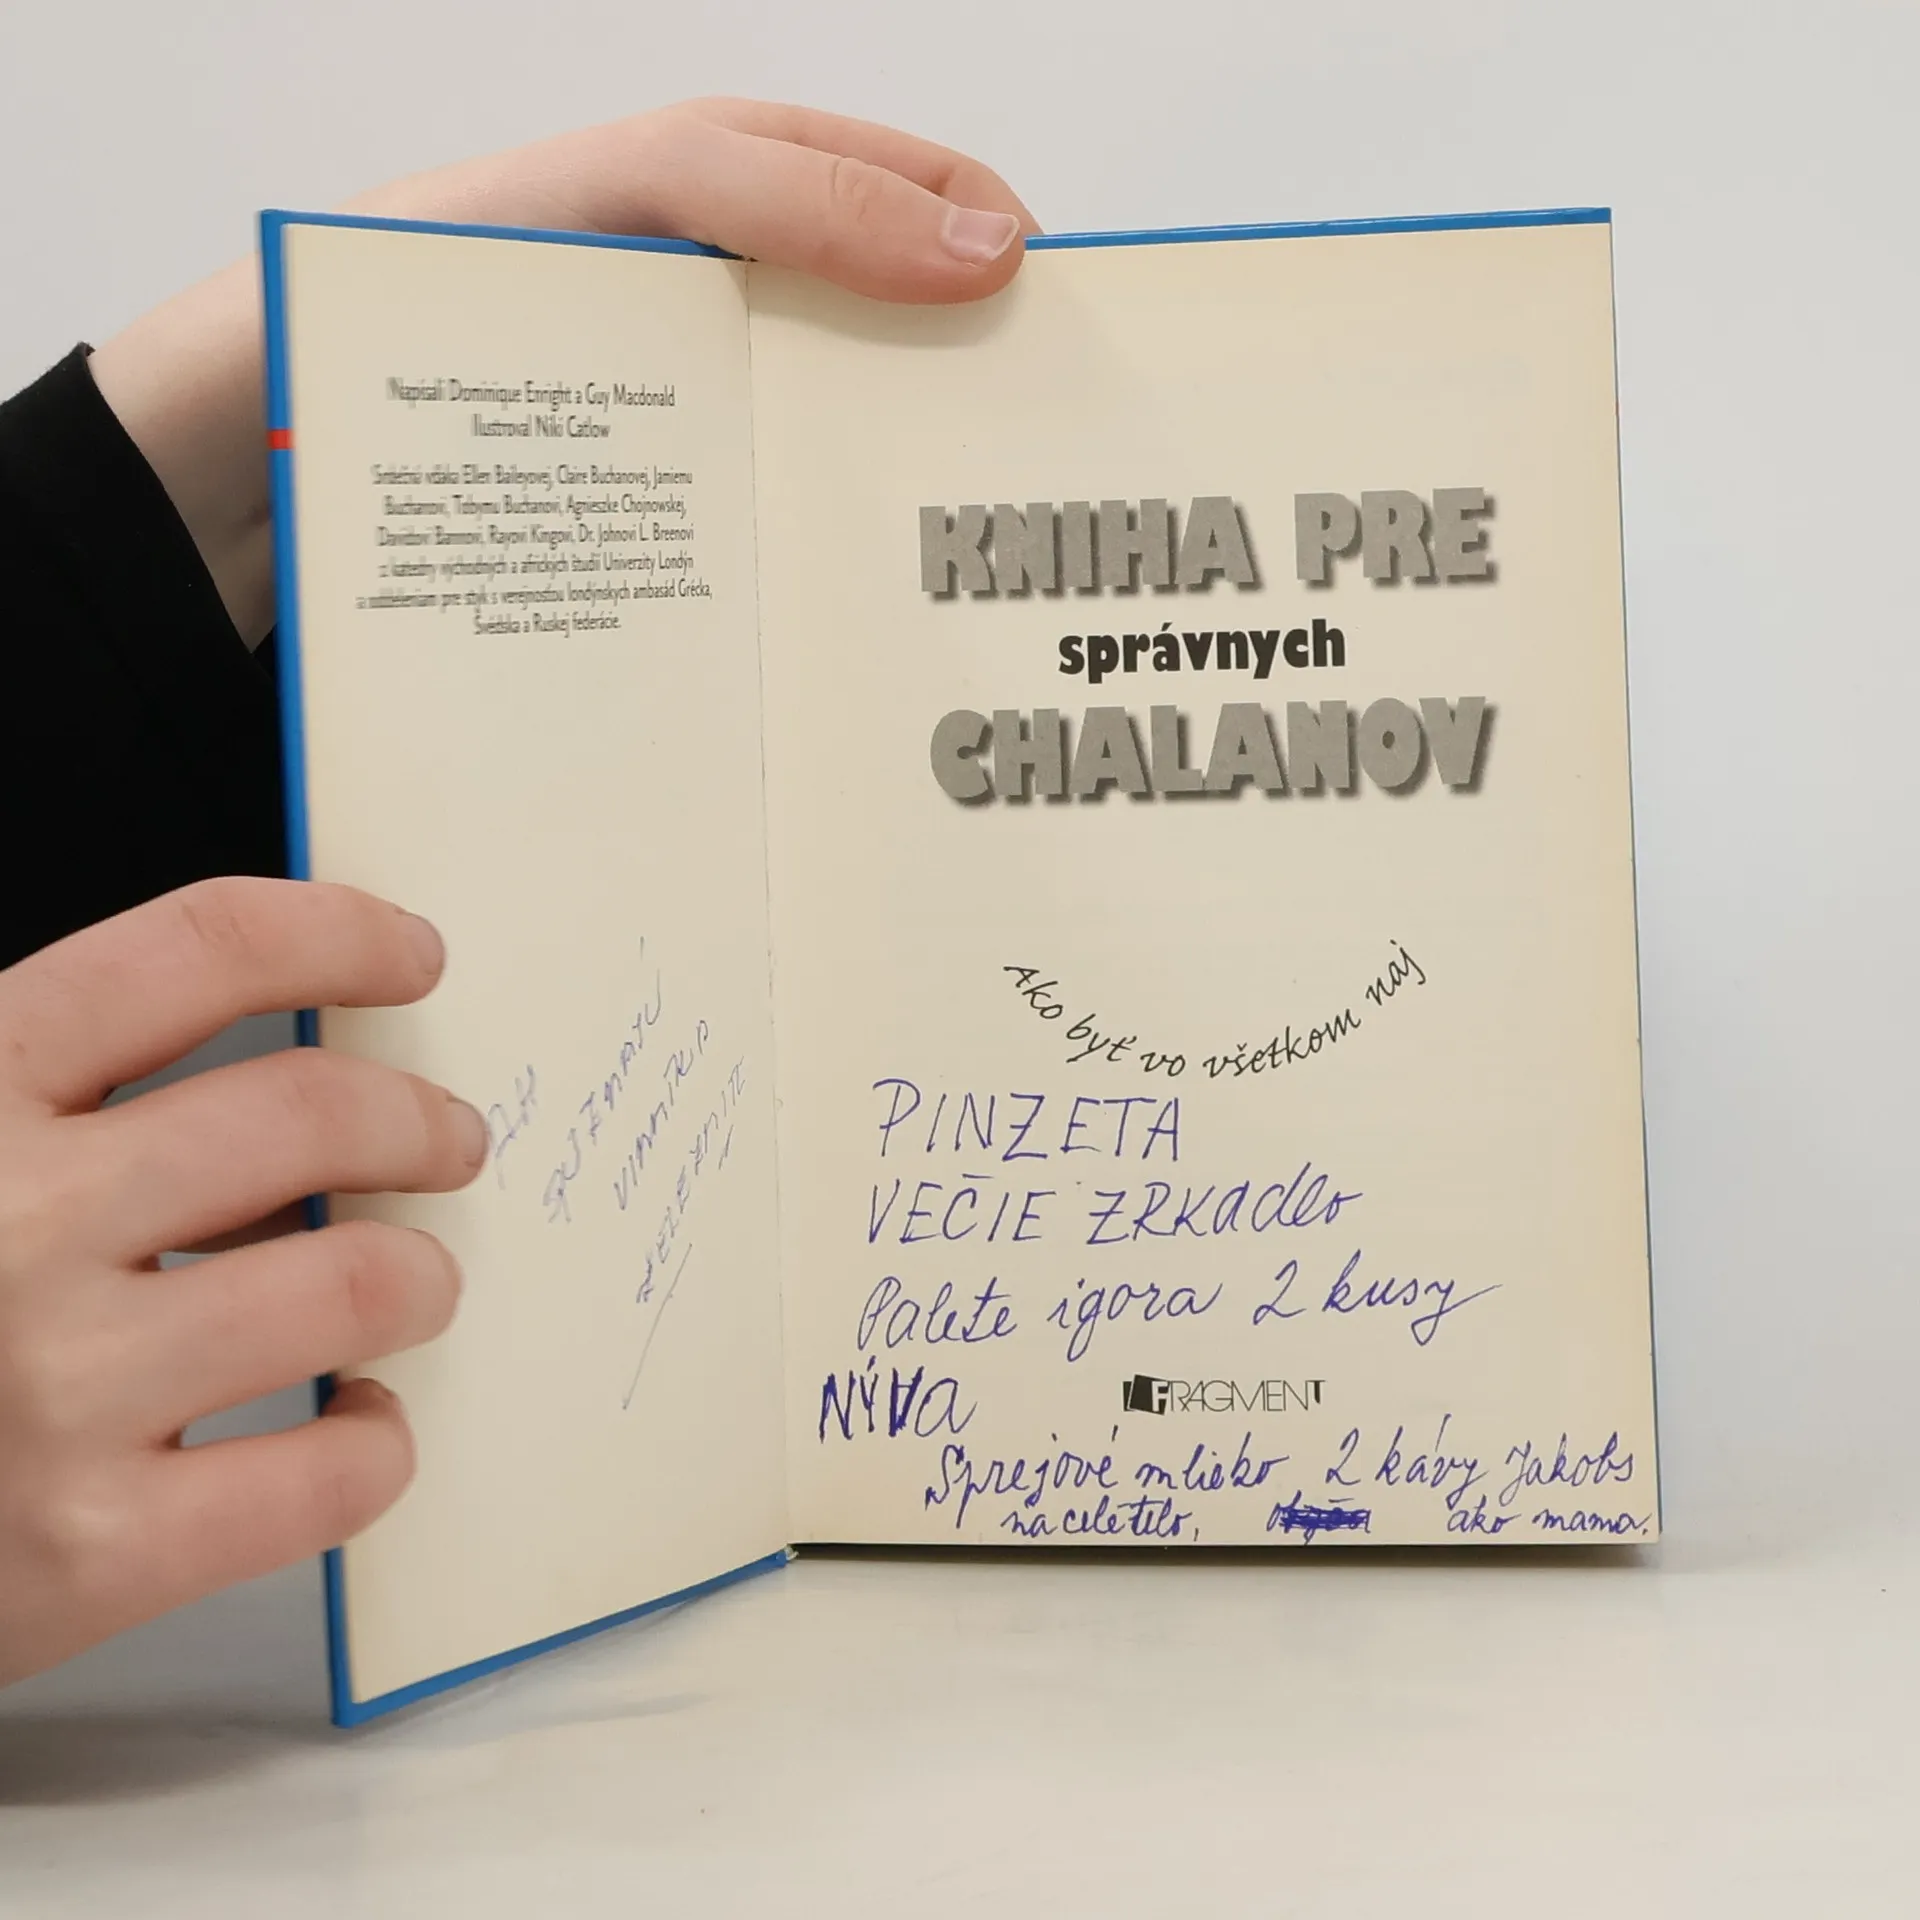 Napísali Dominique Enright a Guy Macdonald
Ilustroval Niki Catlow
Srdečná vďaka Ellen Baileyovej, Claire Buchanovej, Jamiemu
Buchanovi, Tobymu Buchanovi, Agnieszke Chojnowskej,
Davidovi Rayovi Kingovi, Dr. Johnovi L. Breenovi
z katedry východných a afrických štúdií Univerzity Londýn
a oddeleniam pre styk s verejnosťou londýnskych ambasád Grécka,
Švédska a Ruskej federácie.
KNIHA PRE
správnych
CHALANOV
Ako byť vo všetkom naj
PINZETA
VEČIE ZRKadlo
Palete igora 2 kusy
NÝVa
FRAGMENT
Sprejové mlieko 2 kávy Jakobs
na celé telo, ako mama.